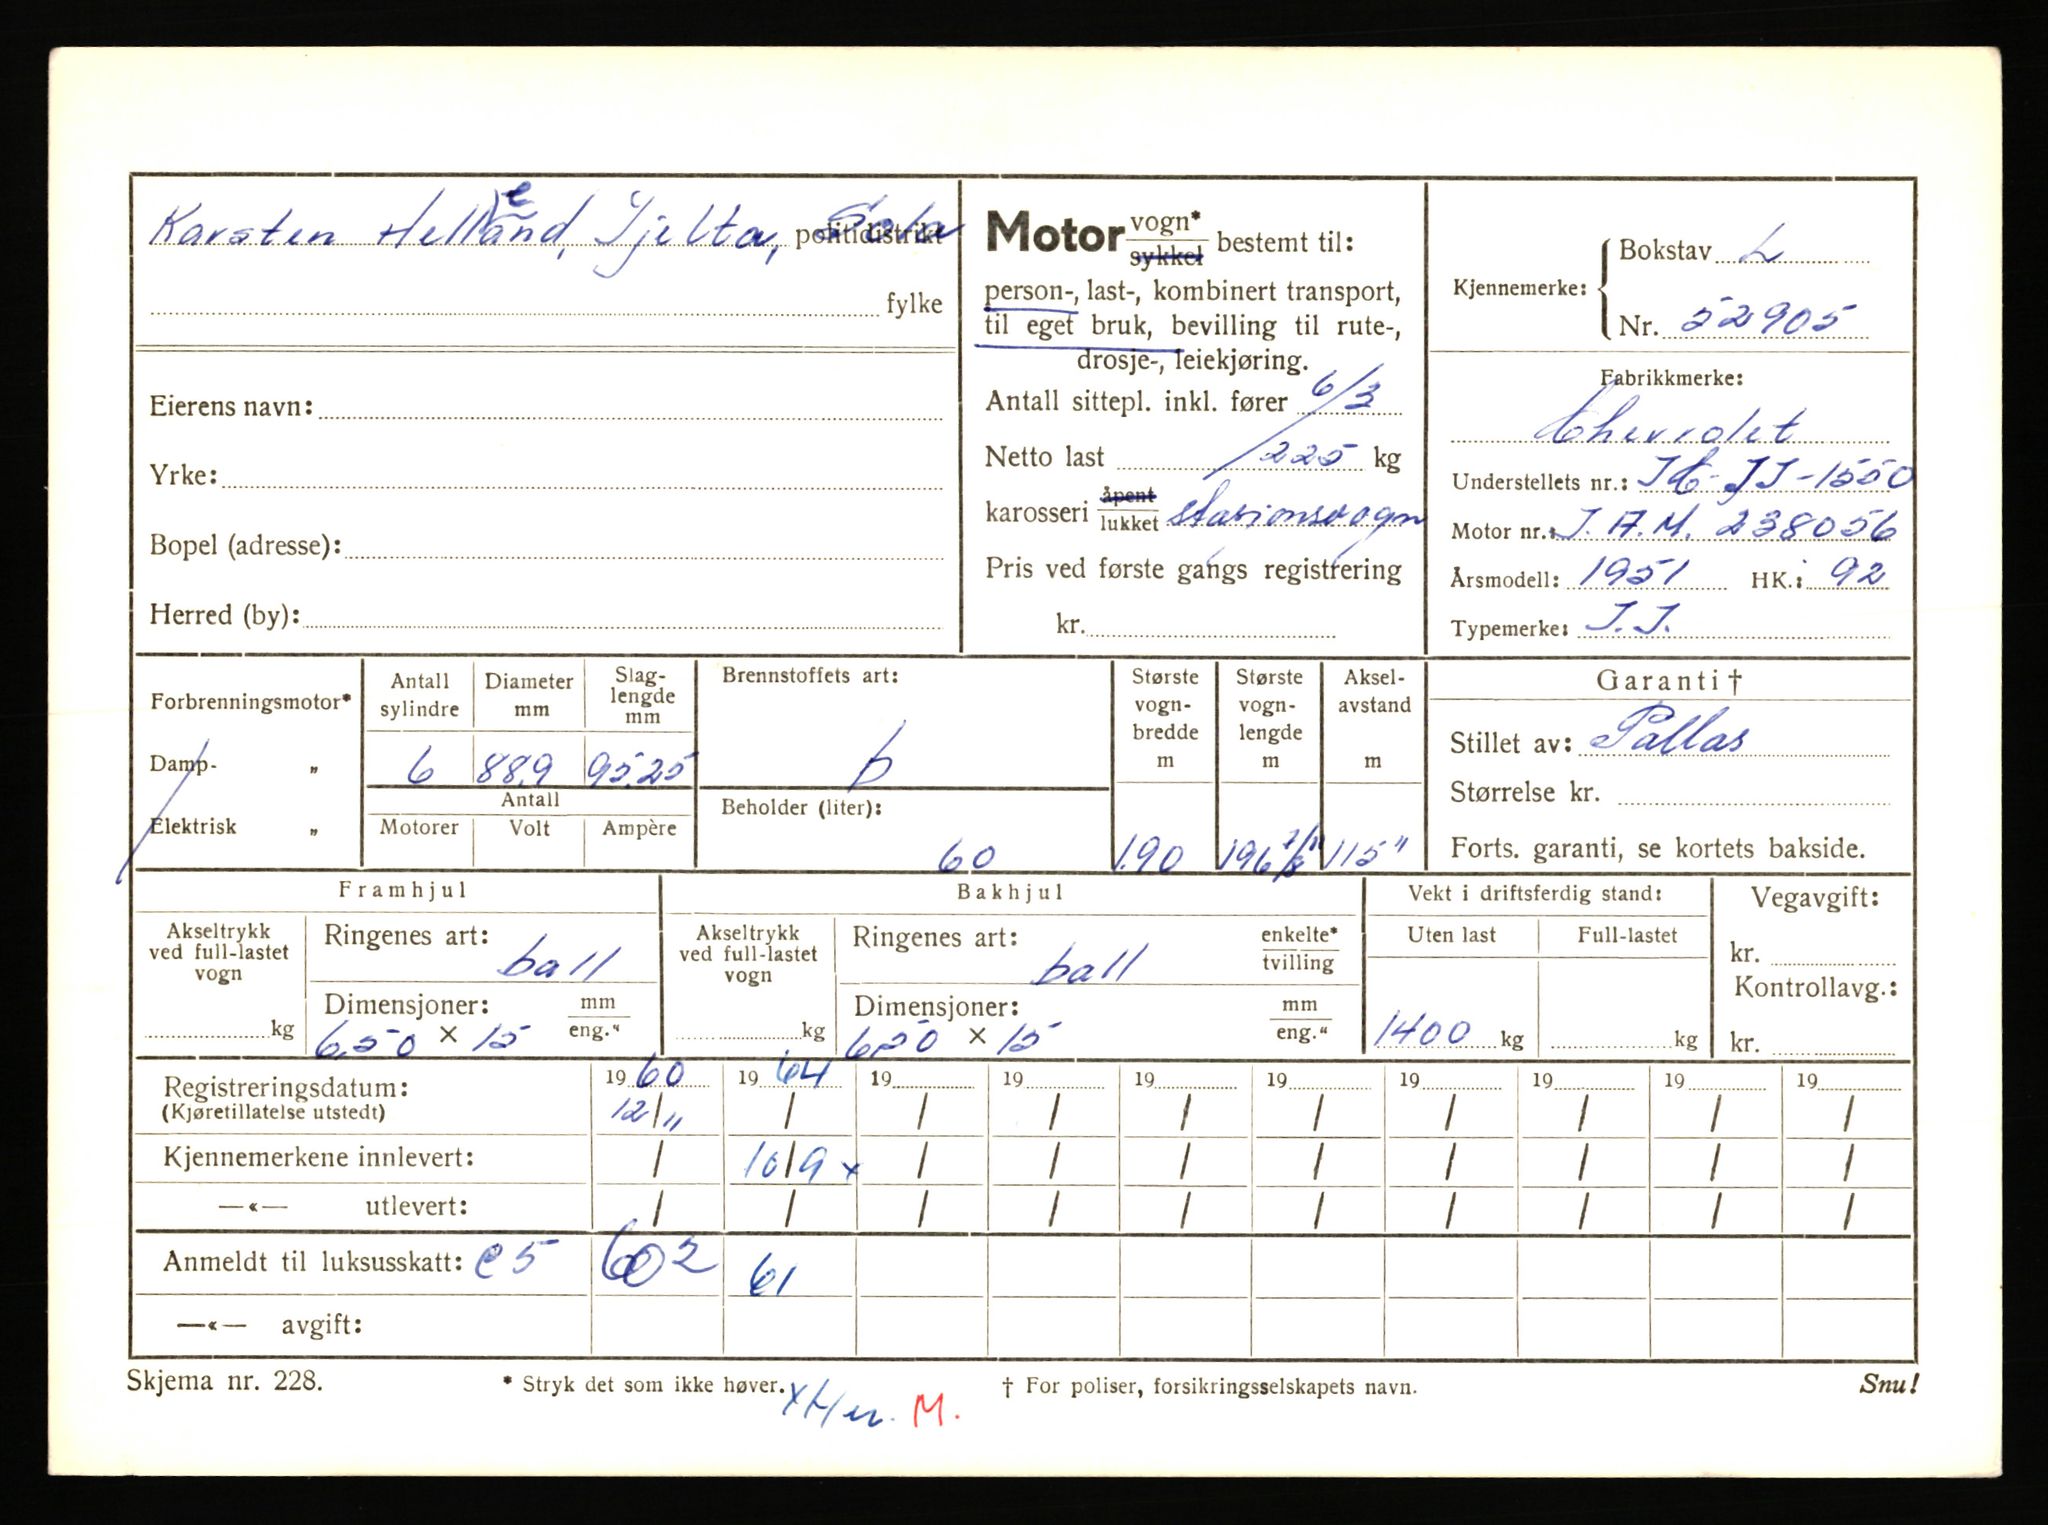 Karsten Helland, Tjelta, Sola politidistrikt
e
fylke
Eierens navn:
Yrke:
Bopel (adresse):
Herred (by):
Motor vogn* sykkel bestemt til:
person-, last-, kombinert transport,
til eget bruk, bevilling til rute-,
drosje-, leiekjøring.
Antall sittepl. inkl. fører 6/3
Netto last 225 kg
karosseri åpent lukket stasjonsvogn
Pris ved første gangs registrering
kr.
Kjennemerke: Bokstav L
Nr. 52905
Fabrikkmerke:
Chevrolet
Understellets nr.: JJ-1550
Motor nr.: J.A.M. 238056
Årsmodell: 1951 HK.: 92
Typemerke: J.J.
Forbrenningsmotor*
Damp- „
Elektrisk „
Antall sylindre Diameter mm Slag-lengde mm
6 88,9 95,25
Antall
Motorer Volt Ampère
Brennstoffets art:
b
Beholder (liter):
60
Største vogn-bredde m
1.90
Største vogn-lengde m
196 7/8"
Aksel-avstand m
115"
Garanti †
Stillet av: Pallas
Størrelse kr.
Forts. garanti, se kortets bakside.
Framhjul
Akseltrykk ved full-lastet vogn
kg
Ringenes art:
ball
Dimensjoner: mm eng."
6,50 × 15
Bakhjul
Akseltrykk ved full-lastet vogn
kg
Ringenes art: enkelte* tvilling
ball
Dimensjoner: mm eng."
6,50 × 15
Vekt i driftsferdig stand:
Uten last Full-lastet
1400 kg kg
Vegavgift:
kr.
Kontrollavg.:
kr.
Registreringsdatum: 1960 1964 19 19 19 19 19 19 19 19
(Kjøretillatelse utstedt) 12/11 / / / / / / / / /
Kjennemerkene innlevert: / 10/9 x / / / / / / / /
—«— utlevert: / / / / / / / / / /
Anmeldt til luksusskatt: e5 602 61
—«— avgift:
Skjema nr. 228. * Stryk det som ikke høver. † For poliser, forsikringsselskapets navn. Snu!
M.